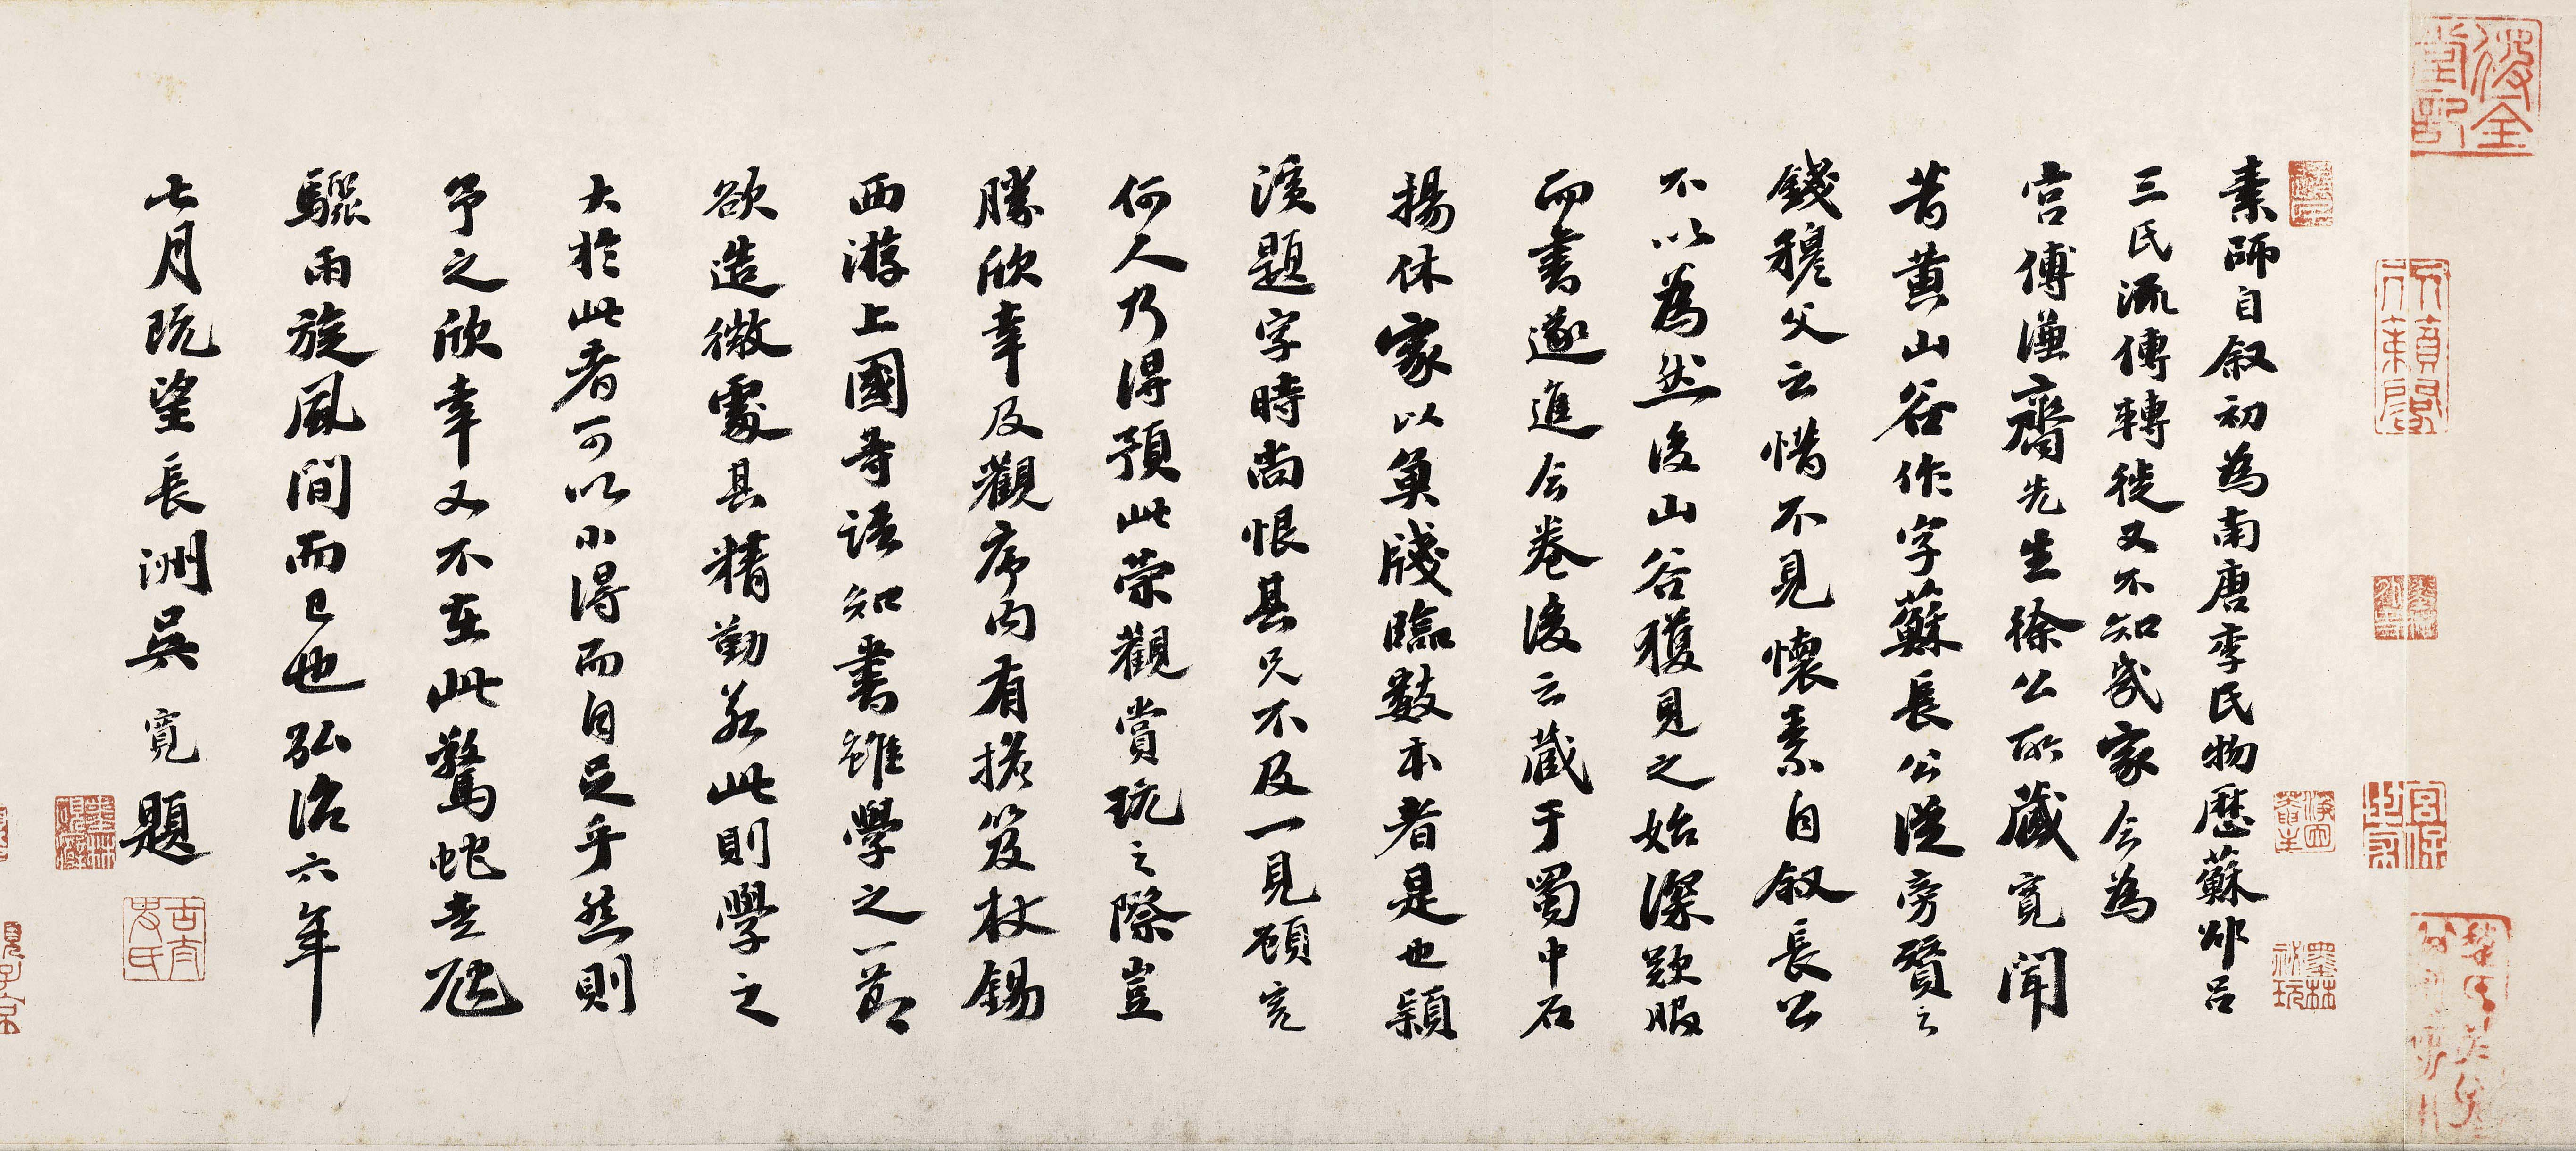 素師自叙初為南唐李氏物歷蘇邵呂
三氏流傳轉徙又不知幾家今為
宫傅謙齋先生徐公所藏寬聞
昔黄山谷作字蘇長公從旁贊之
錢穆父云惜不見懷素自叙長公
不以為然後山谷獲見之始深歎服
而書遂進今卷後云藏于蜀中石
揚休家以魚牋臨數本者是也潁
濱題字時尚恨其兄不及一見顧寬
何人乃得預此荣觀賞玩之際豈
勝欣幸及觀序内有擔笈杖錫
西游上國等語知書雖學之一節
欲造微處其精勤若此則學之
大於此者可以小得而自足乎然則
予之欣幸又不在此驚蛇走虺
驟雨旋風間而已也弘治六年
七月既望長洲吳寬題